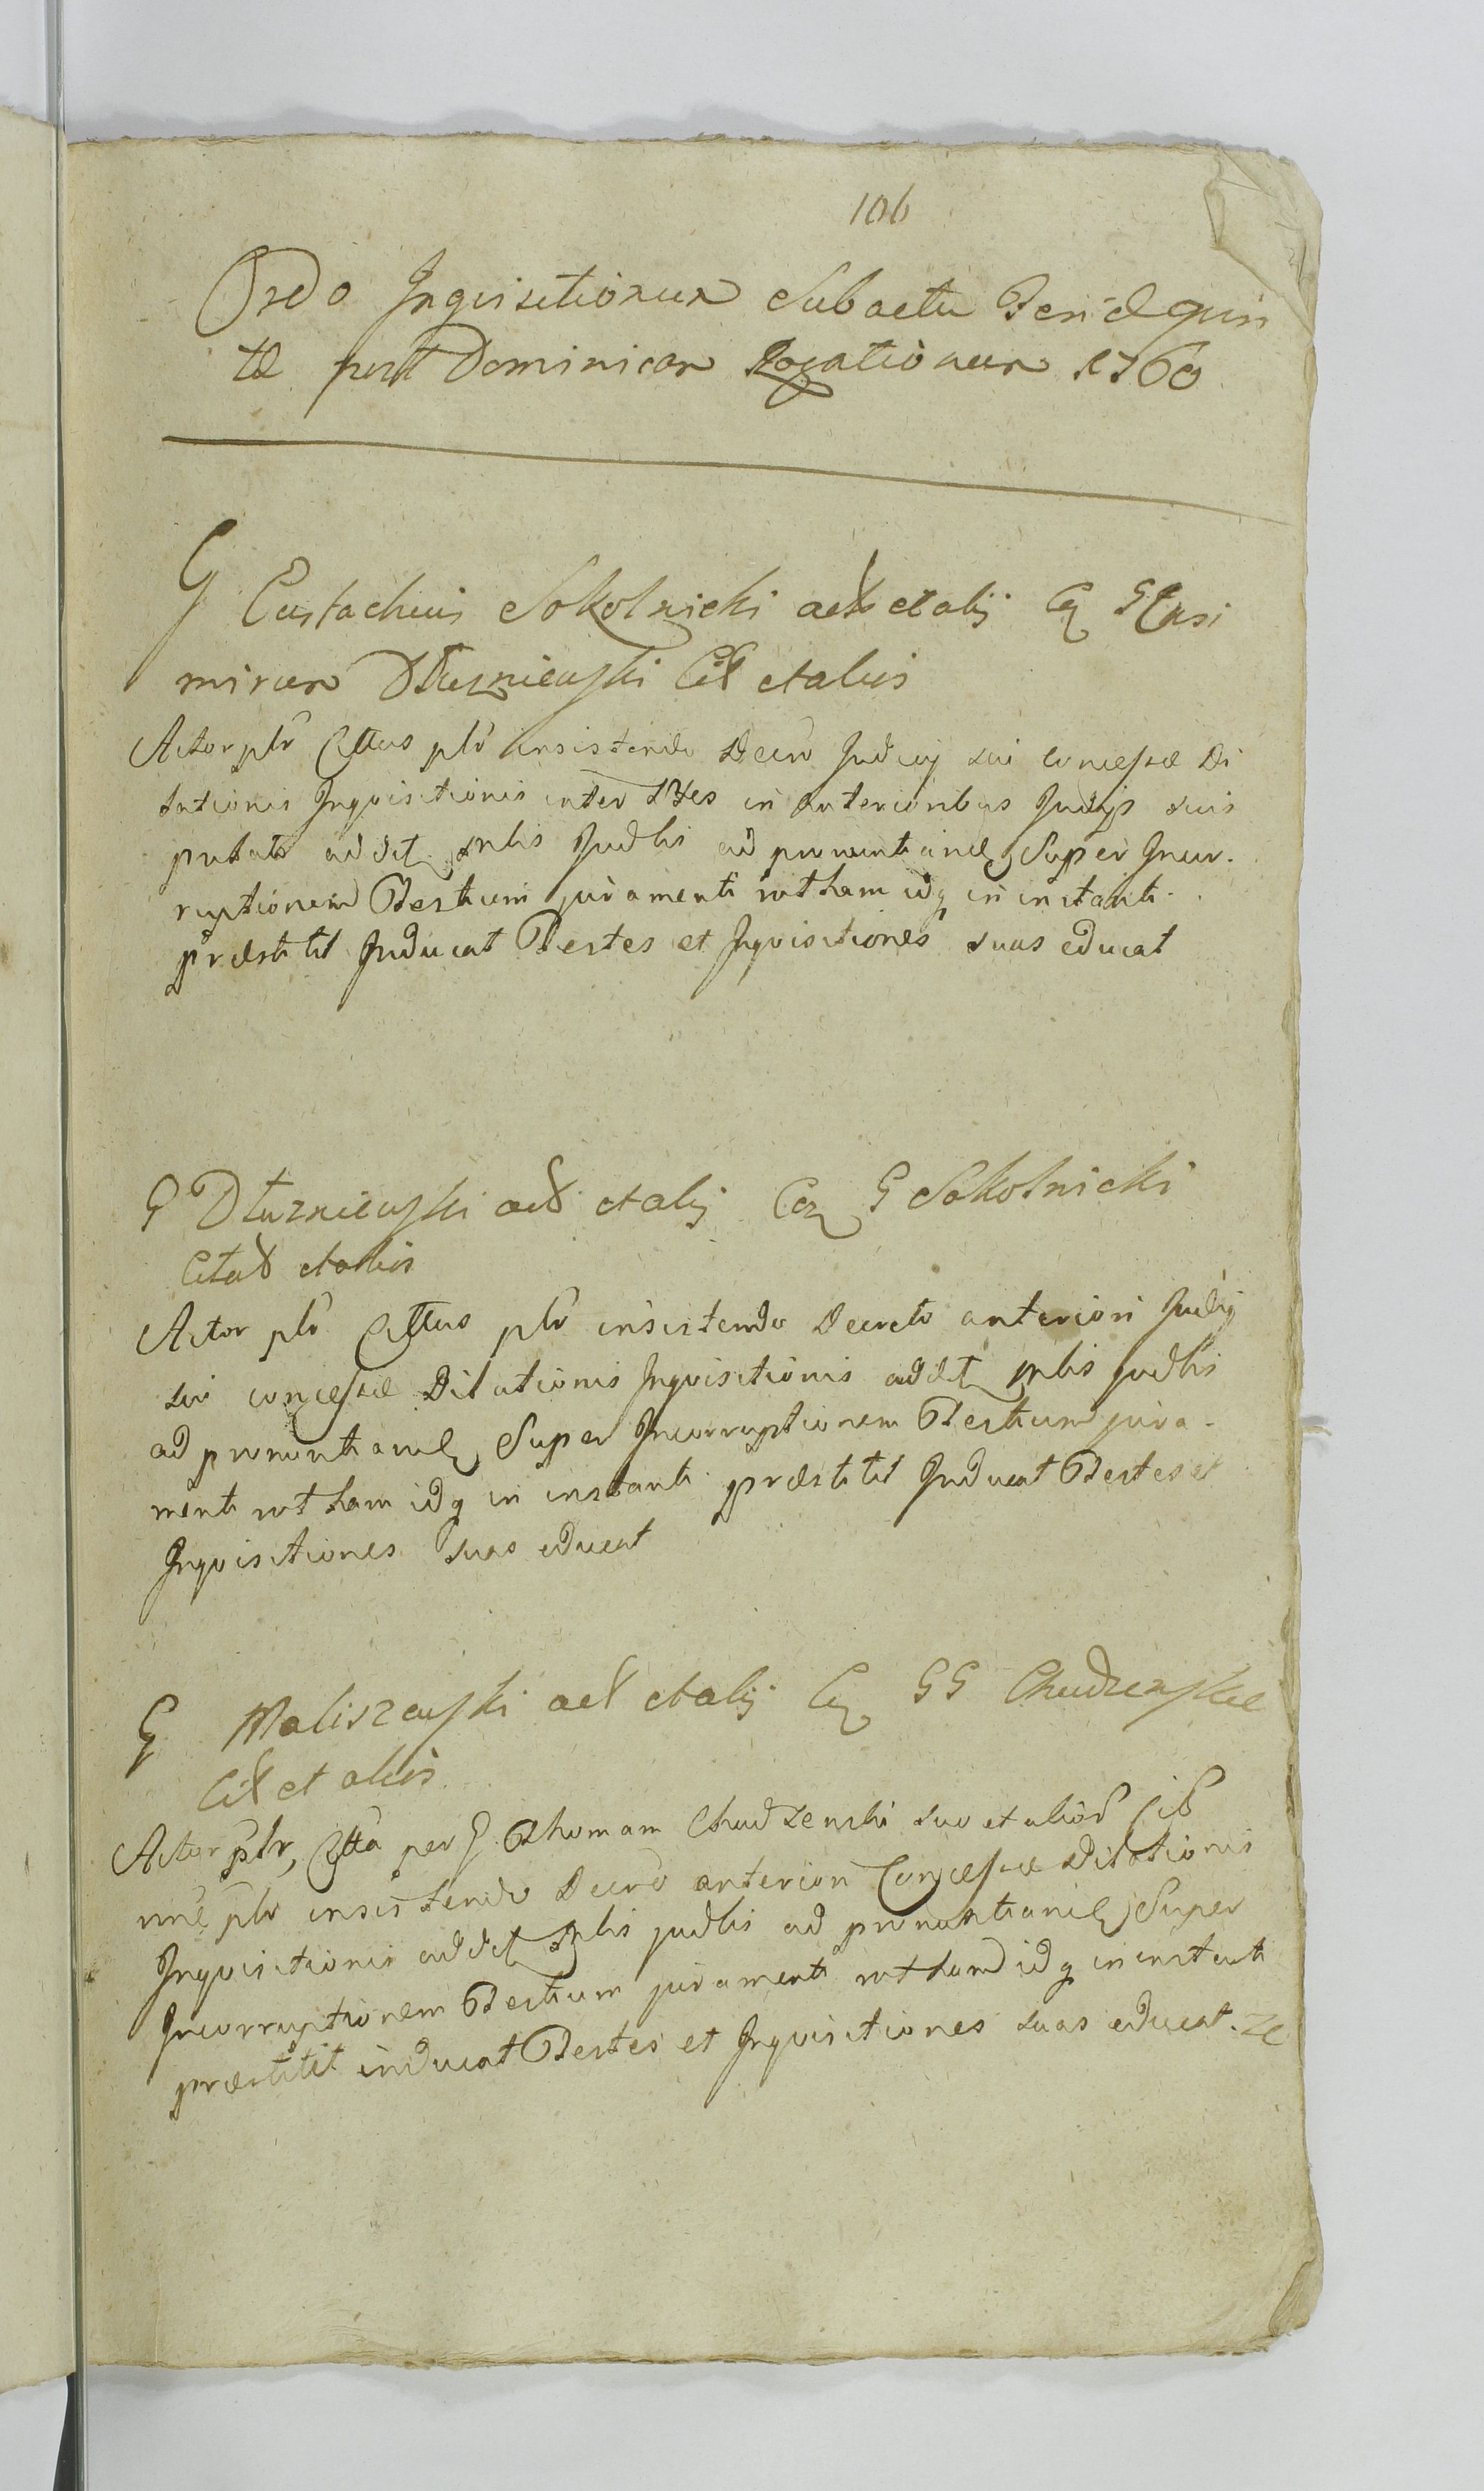 106
Ordo Inquisitionum Sub actu Feriæ quin
tæ post Dominicam Rogationum 1760
G Eustachius Sokolnicki act et alij Cq G Casi
mirum Dłuzniewski Cit et aliis
Actor plr Cittus plr insistendo Decro Judicij sui concessæ Di
lationis Inquisitionis inter Ptes in anterioribus Judijs suis
addet Judlis ad pronuntiand Super Incor-
ruptionem Testium juramenti rotham idq in instanti
præstitit Inducat Testes et Inquisitiones suas educat
G Dłuzniewski act et alij Cq G Sokolnicki
Citat et aliis
Actor plr Cittus plr insistendo Decreto anteriori Judij
sui concessæ Dilationis Inquisitionis addet judlis
ad pronuntiand Super Incorruptionem Testium jura-
menti rotham idq in instanti præstitit Inducat Testes et
Inquisitiones suas educat
G Maliszewski act et alij Cq GG Chudzenskie
Cit et aliis
Actor plr, Citta per G Thomam Chudzenski suo et alior Cit
nne plr insistendo Decro anteriori Concessæ Dilationis
Inquisitionis addet judlis ad pronuntiand Super
Incorruptionem Testium juramenti rotham idq in instanti
præstitit inducat Testes et Inquisitiones suas educat.